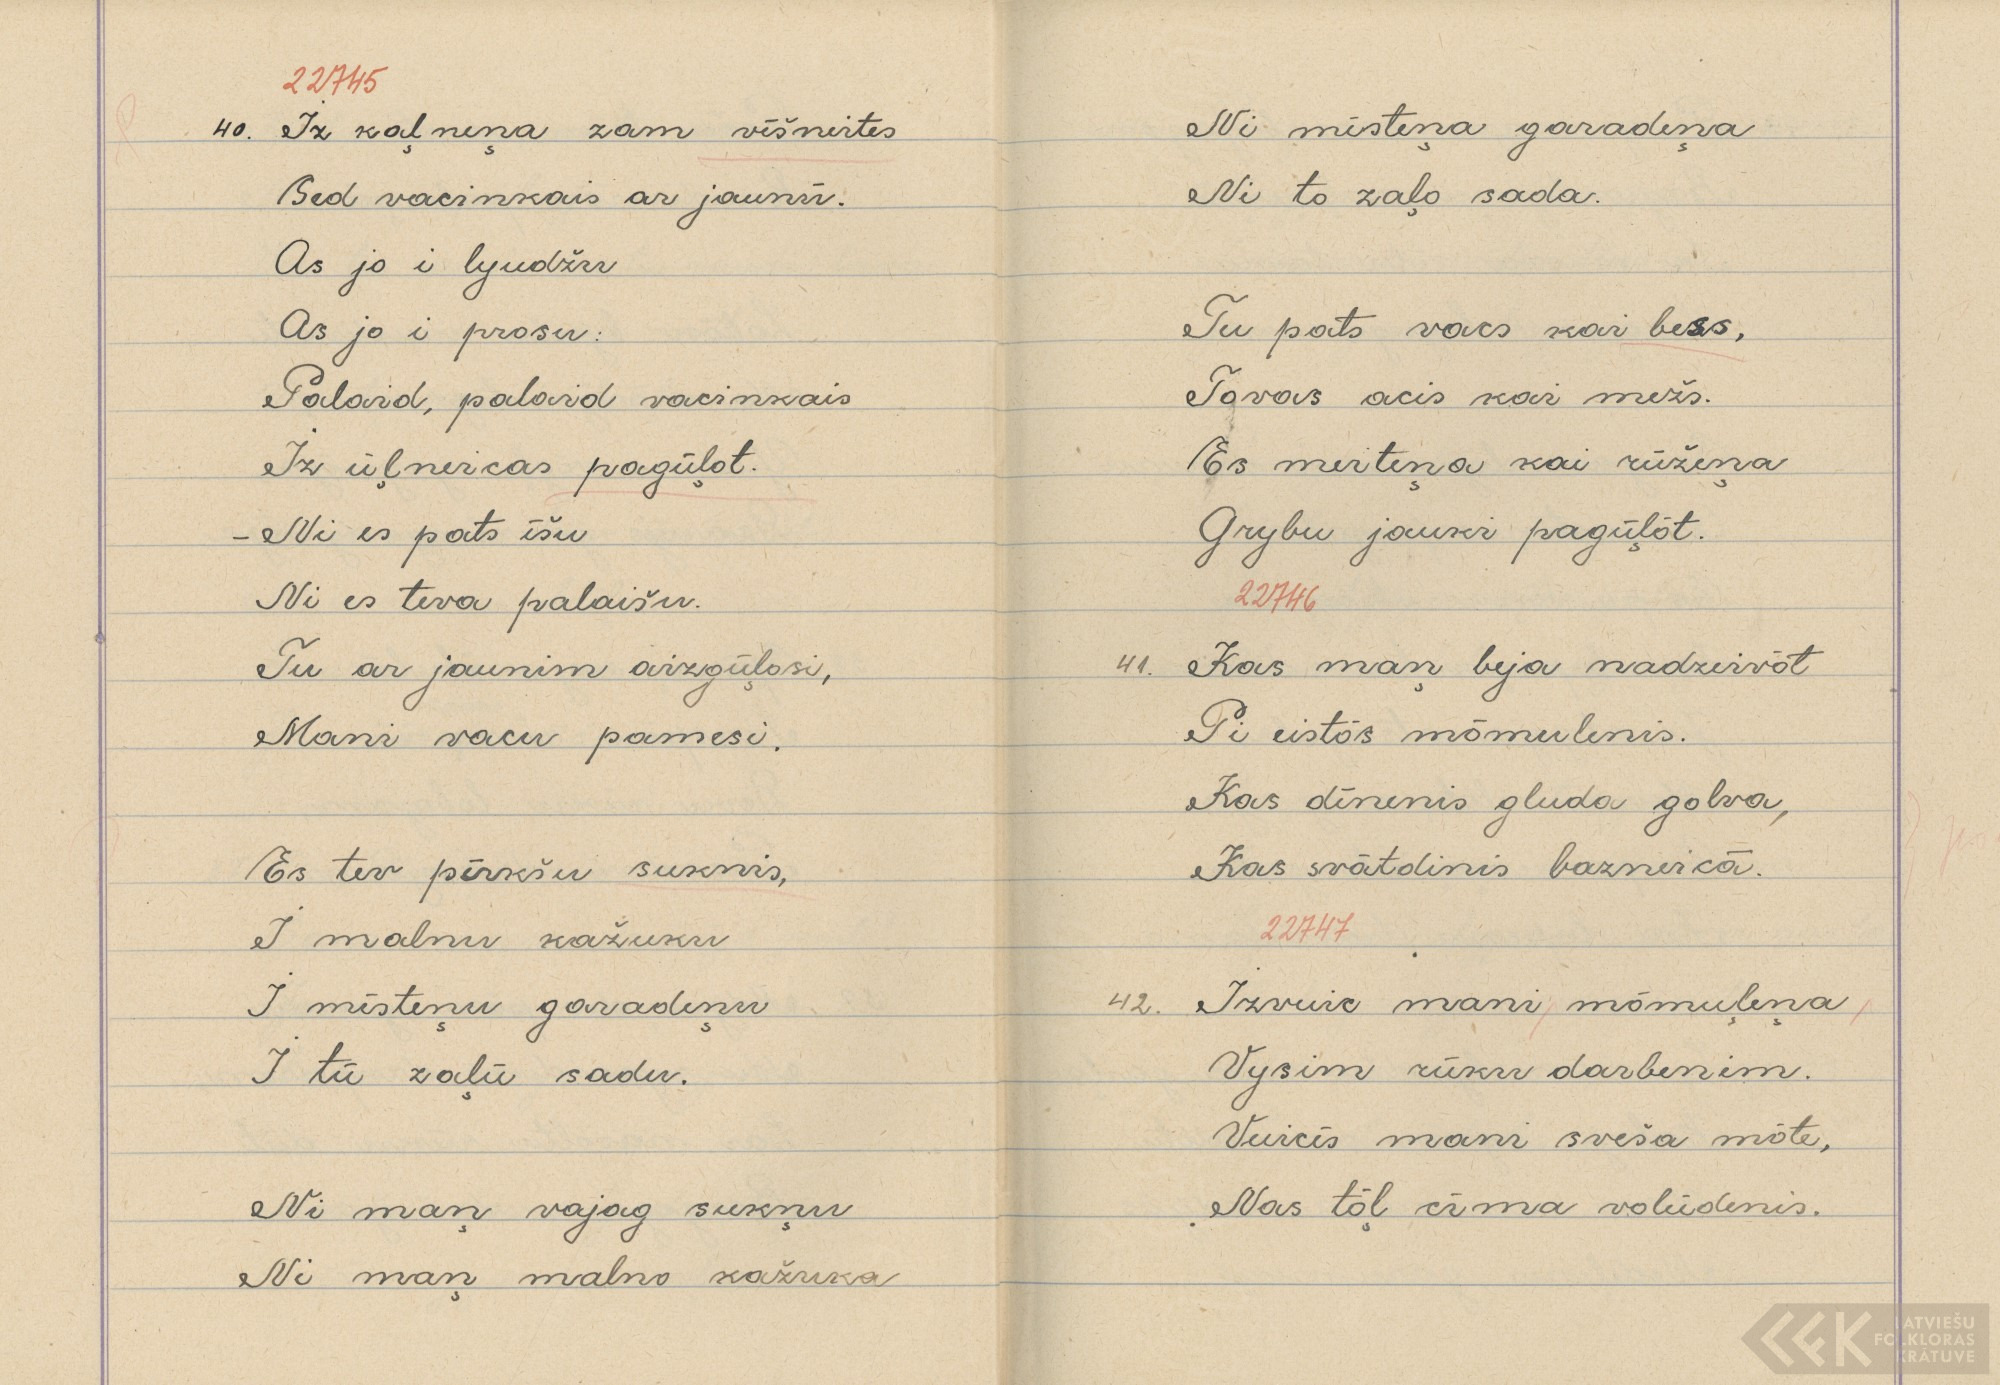 22745
40. Iz kaļneņa zam vīšneites
Sed vacinkais ar jaunū.
As jo i lyudžu
As jo i prosu:
Palaid, palaid vacinkais
Iz ūļneicas pagūļot.
– Ni es pats īšu
Ni es teva palaišu.
Tu ar jaunim aizgūļosi,
Mani vacu pamesi.
Es tev pīrkšu suknis,
I malnu kažuku
I mīsteņu garadeņu
I tū zaļū sadu.
Ni maņ vajag sukņu
Ni maņ malno kažuka
Ni mīsteņa garadeņa
Ni to zaļo sada.
Tu pats vacs kai bess,
Tavas acis kai mežs.
Es meiteņa kai rūžeņa
Grybu jauki pagūļōt.
22746
41. Kas maņ beja nadzeivōt
Pi eistōs mōmulenis.
Kas dīnenis gluda golva,
Kas svātdinis bazneicā.
22747
42. Izvuic mani, mōmuļeņa,
Vysim rūku darbenim.
Vuicīs mani sveša mōte,
Nas tōļ cīma volūdenis.
LATVIEŠU
FOLKLORAS
KRĀTUVE